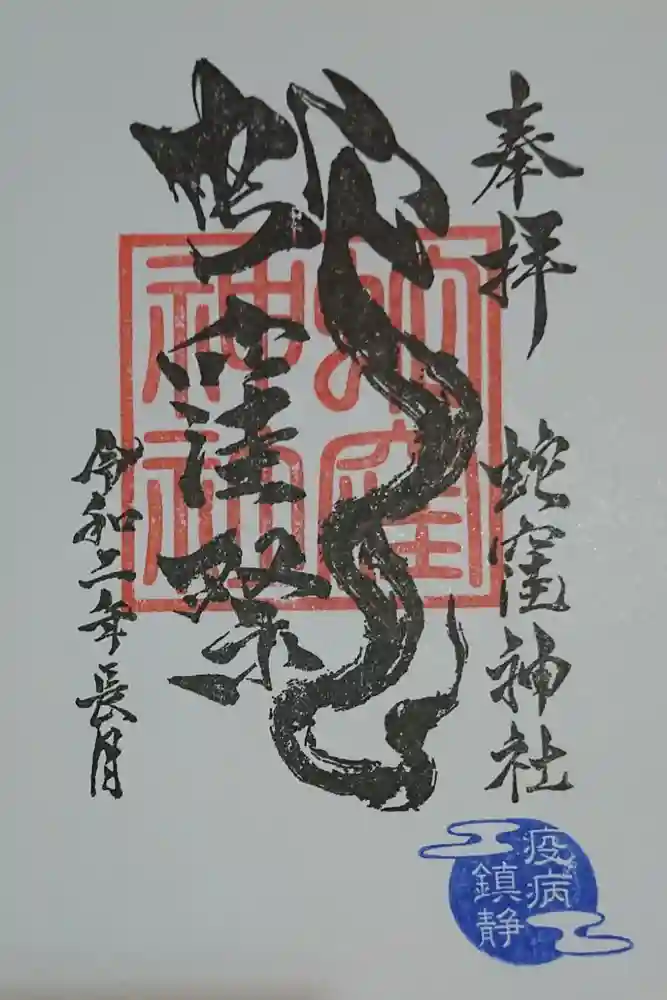 奉拝
蛇窪神社
蛇窪祭
蛇窪
神社
令和二年長月
疫病
鎮静